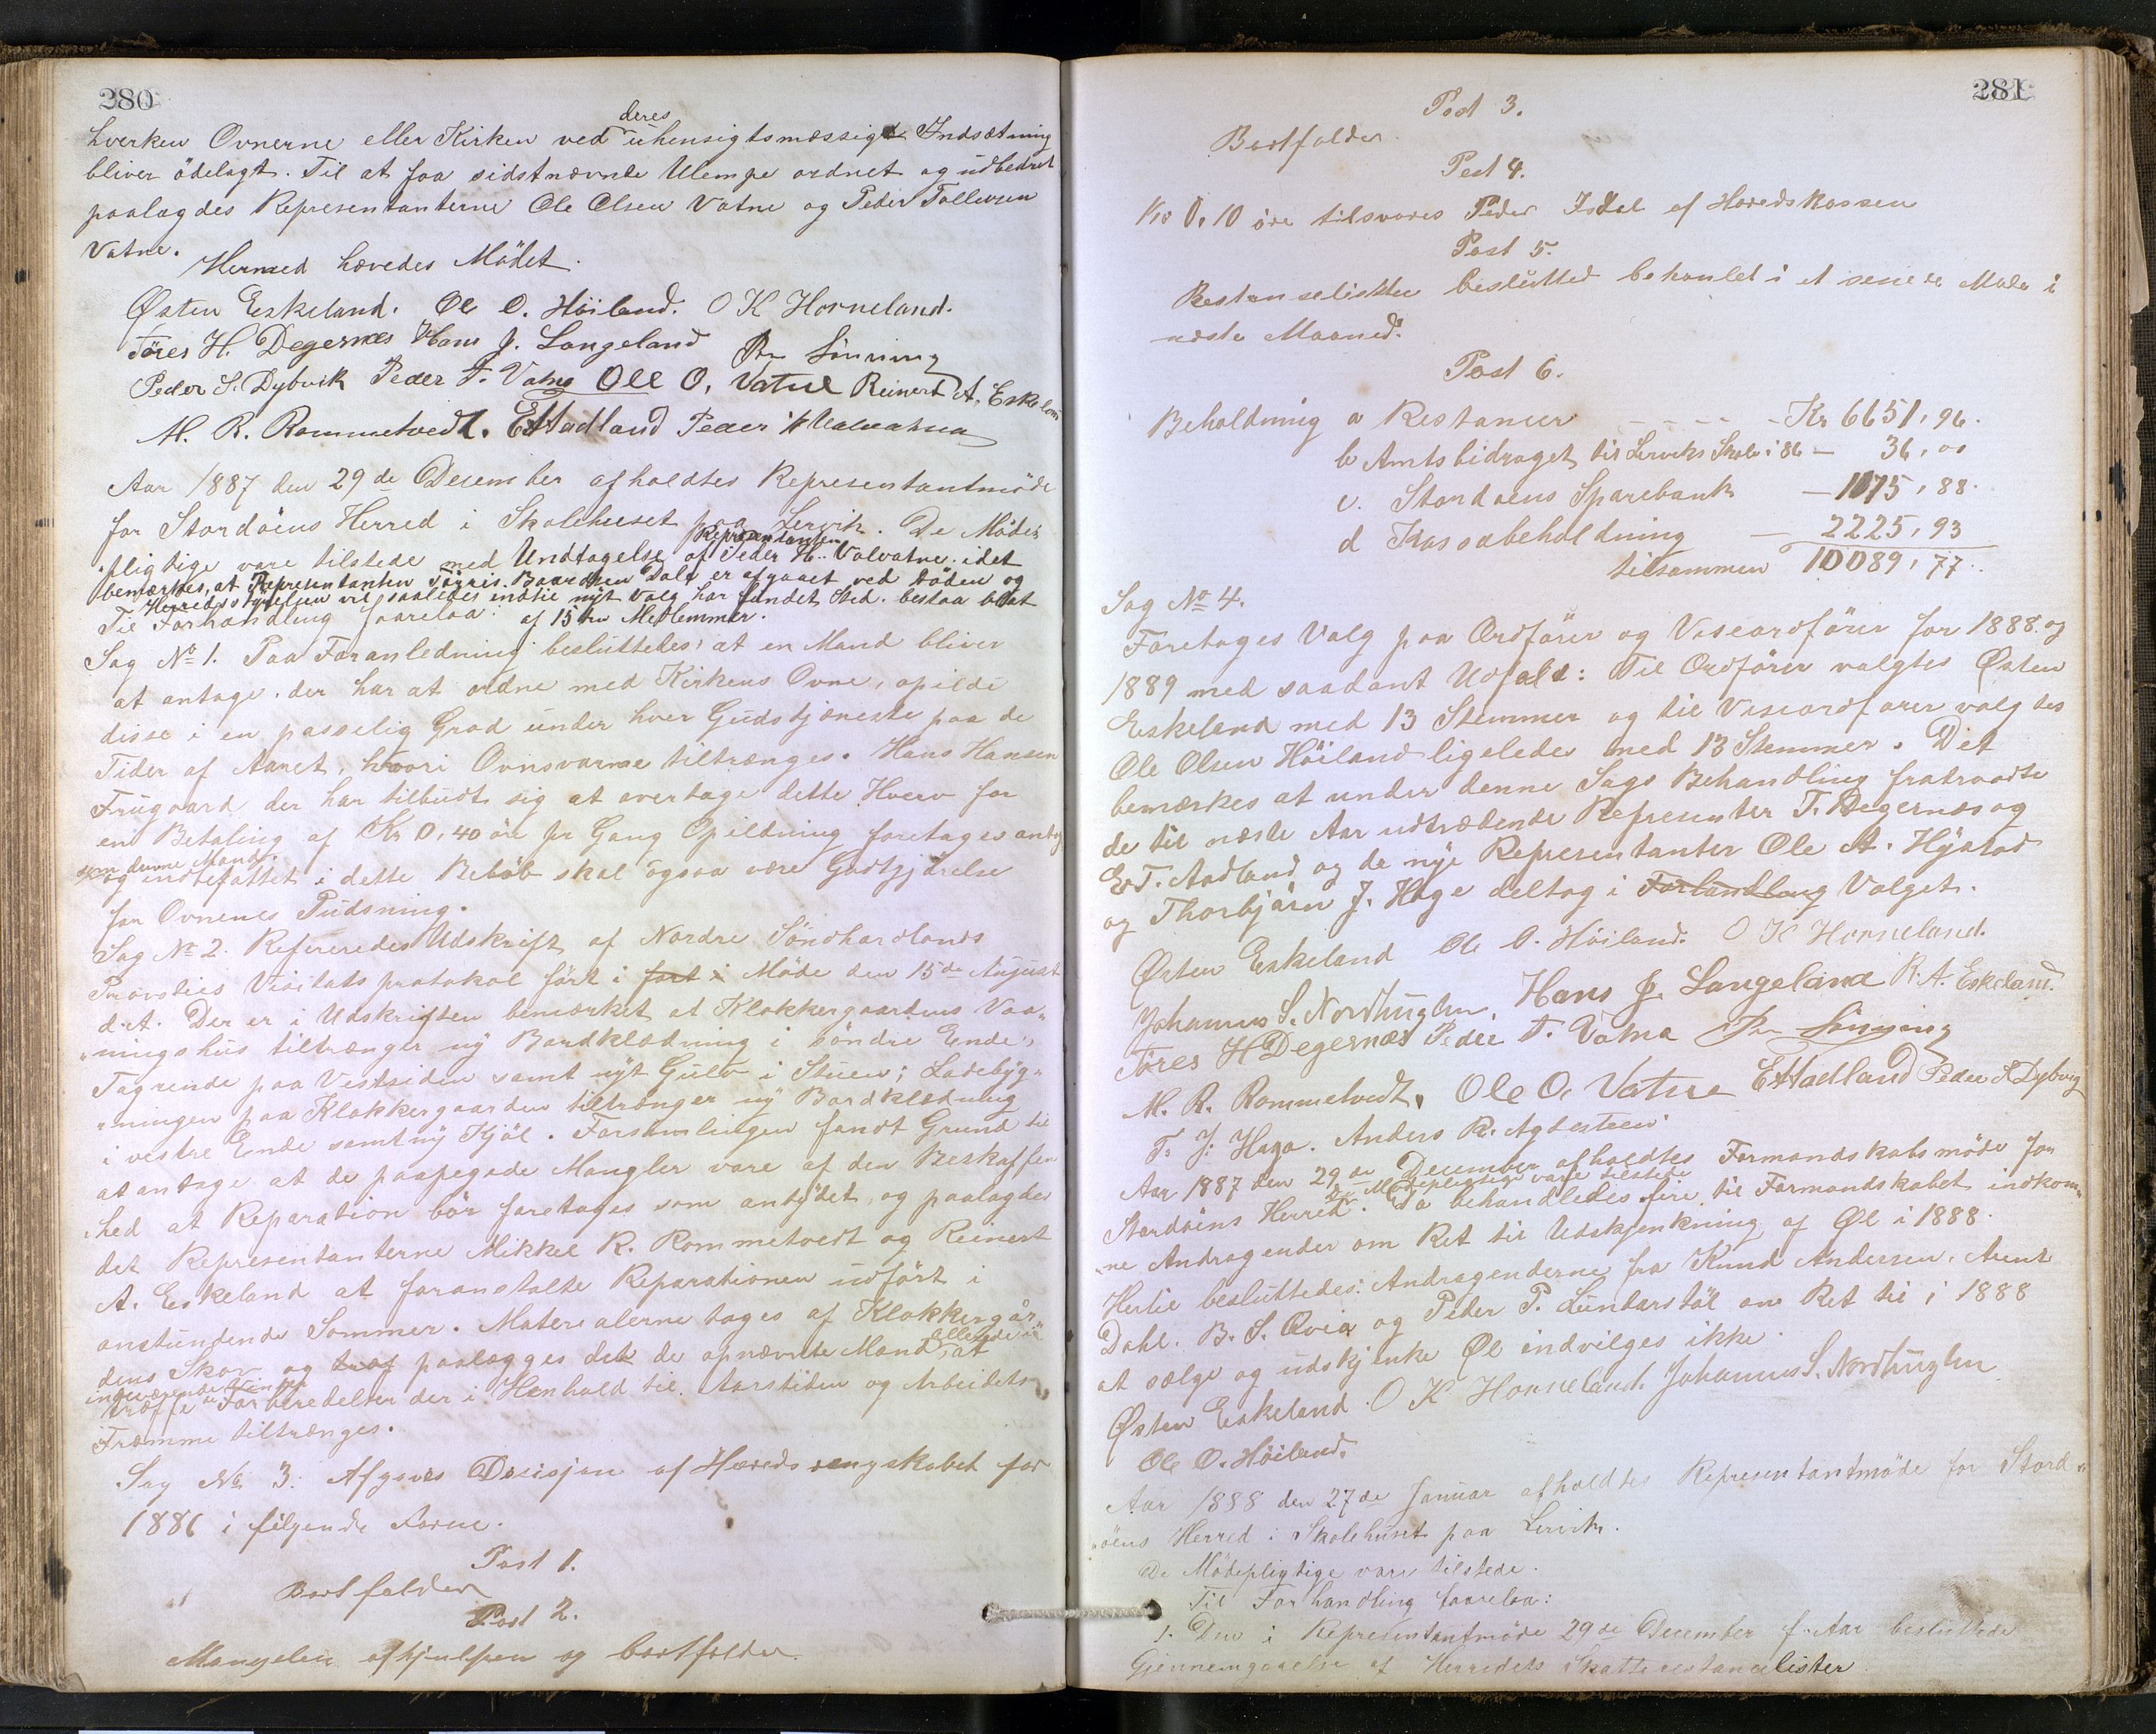 280
hverken Ovnerne eller Kirken ved deres uhensigtsmæssige Indsætning
bliver ödelagt. Til at faa sidstnævnte Ulempe ordnet og udbedret
paalagdes Representanterne Ole Olsen Vatne og Peder Tollevsen
Vatne.
Hermed hævedes Mödet.
Østen Eskeland. Ole O. Höiland. O K Horneland.
Töres H. Degernæs Hans J. Langeland Per Sönning
Peder S. Dybvik Peder T. Vatna Ole O. Vatne Reinert A. Eskeland
M. R. Rommetvedt. E Aadland Peder H Valvatna
Aar 1887 den 29de Desember afholdtes Representantmöde
for Stordöens Herred i Skolehuset paa Lervik. De Möde-
pligtige vare tilstede med Undtagelse af Representanten Peder H. Valvatne, idet
bemærkes, at Representanten Törris Baardsen Dale er afgaaet ved Döden og
Herredsstyrelsen vil saaledes indtil nyt Valg har fundet Sted. bestaa blot
af 15ten Medlemmer.
Til Forhandling foorelaa:
Sag No 1. Paa Foranledning besluttedes: at en Mand bliver
at antage. der har at ordne med Kirkens Ovne, opilde
disse i en passelig Grad under hver Gudstjeneste paa de
Tider af Aaret, hvori Ovnsvarme tiltrænges. Hans Hansen
Frugaard der har tilbudt sig at overtage dette Hverv for
en Betaling af Kr 0,40 öre pr Gang Opildning foretages antog
som denne Mand.
og indbefattet i dette Belöb skal ogsaa være Godtgjörelse
for Ovnenes Pudsning.
Sag No 2. Refereredes Udskrift af Nordre Söndhordlands
Provsties Visitatsprotokol fört i fort i Möde den 15de August
d. A. Der er i Udskriften bemærket at Klokkergaardens Vaa-
ningshus tiltrænger ny Bordklædning i söndre Ende,
Tagrende paa Vestsiden samt nyt Gulv i Stuen; Ladebyg-
ningen paa Klokkergaarden tiltrænger ny Bordklædning
i vestre Ende samt ny Kjöl. Forsamlingen fandt Grund til
at antage at de paapegede Mangler vare af den Beskaffen
hed at Reparation bör foretages som antydet, og paalagdes
det Representanterne Mikkel R. Rommetvedt og Reinert
A. Eskeland at foranstalte Reparationen udfört i
anstundende Sommer. Materialerne tages af Klokkergår
dens Skov og traf paalægges det de opnævnte Mænd allerede i at
indeværende Vinter
træffe de Forberedelser der i Henhold til Aarstiden og Arbeidets
Fromme tiltrænges.
Sag No 3. Afgaves Desisjon af Hæredsrengskabet for
1886 i fölgende Form.
Post 1.
Bortfalder
Post 2.
Mangelen afhjulpen og bortfalder.
281
Post 3.
Bortfalder
Post 4.
Kr 0,10 öre tilsvares Peder Isdal af Heredskassen
Post 5.
Restanselisten beslutted behanlet i et senere Mode i
næste Maaned.
Post 6.
Beholdning a Restancer - - - - Kr 6651,96.
b Amtsbidraget til Lerviks Skole i 86 — 36,00
c. Stordöens Sparebank — 1175,88.
d Kassabeholdning — 2225,93
tilsammen 10089,77.
Sag No 4.
Foretages Valg paa Ordförer og Viseordförer for 1888 og
1889 med saadant Udfald: Til Ordförer valgtes Østen
Eskeland med 13 Stemmer og til Viseordforer valgtes
Ole Olsen Höiland ligeledes med 13 Stemmer. Det
bemærkes at under denne Sags Behandling fratraadte
de til næste Aar udtrædende Representer T. Degernæs og
E. T. Aadland og de nye Representanter Ole A. Hystad
og Thorbjörn J. Hage deltog i Forlandling Valget.
Østen Eskeland Ole O. Höiland. O K Horneland.
Johannes S. Nordhuglen. Hans J. Langeland R. A. Eskeland.
Töres H Degernæs Peder T. Vatna Per Sönning
M. R. Rommetvedt. Ole O. Vatne E Aadland Peder S Dybvig
T. J. Haga. Anders R. Agdesteen
Aar 1887 den 29de December afholdtes Formandskabsmöde for
Stordöens Herred. De Mödepligtige vare tilstede. Da behandledes fire til Formandskabet indkom-
ne Andragender om Ret til Udskjenkning af Øl i 1888.
Hertil besluttedes: Andragenderne fra Knud Andersen, Arent
Dahl. B. S. Qvia og Peder P. Lundarstöl om Ret til i 1888
at sælge og udskjenke Øl indvilges ikke.
Østen Eskeland. O K Horneland. Johannes S. Nordhuglen
Ole O. Höiland.
Aar 1888 den 27de Januar afholdtes Representantmöde for Stord-
öens Herred i Skolehuset paa Lervik.
De Mödepligtige vare tilstede.
Til Forhandling foorelaa:
1. Den i Representantmöde 29de December f. Aar besluttede
Gjennemgaaelse af Herredets Skatterestancelister